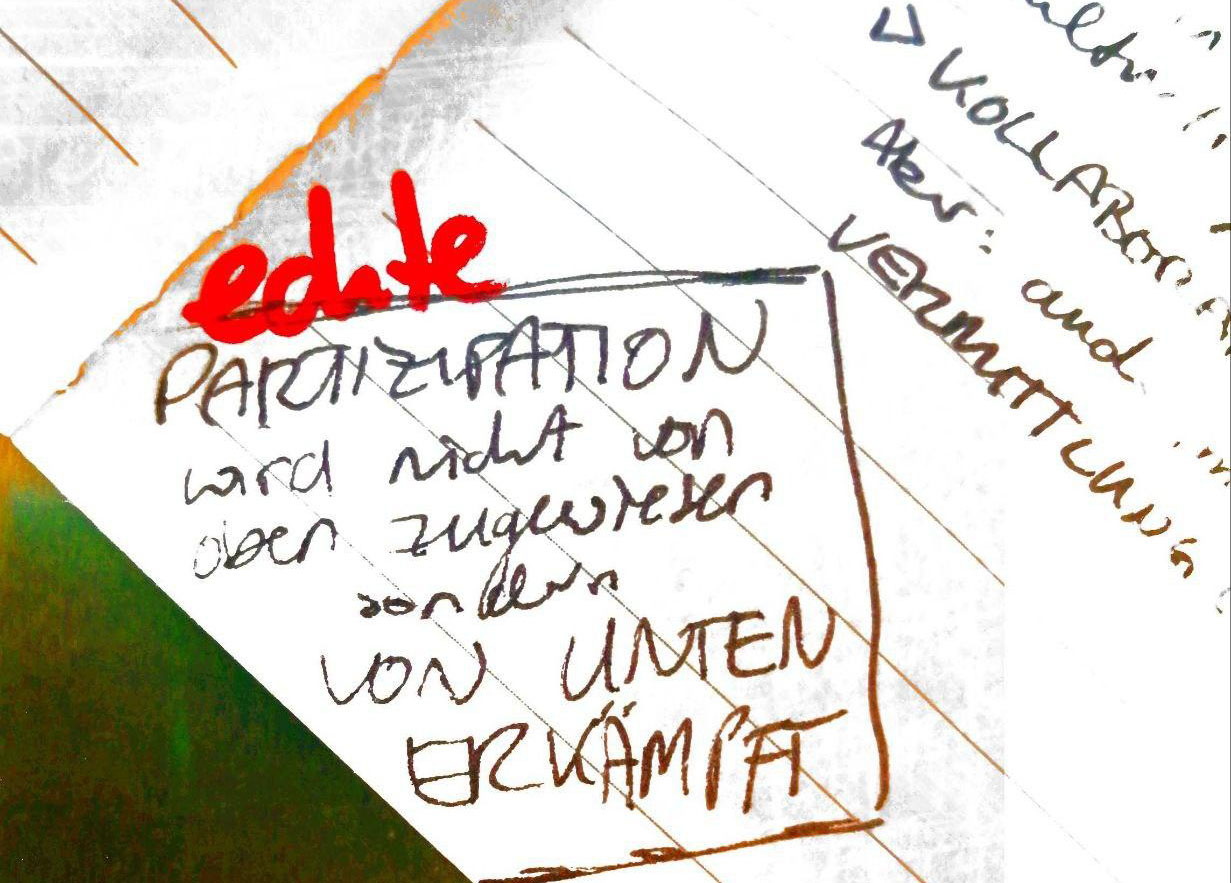 echte
PARTIZIPATION
wird nicht von
oben zugewiesen
sondern
VON UNTEN
ERKÄMPFT
Aber: auch
VERMITTLUNG